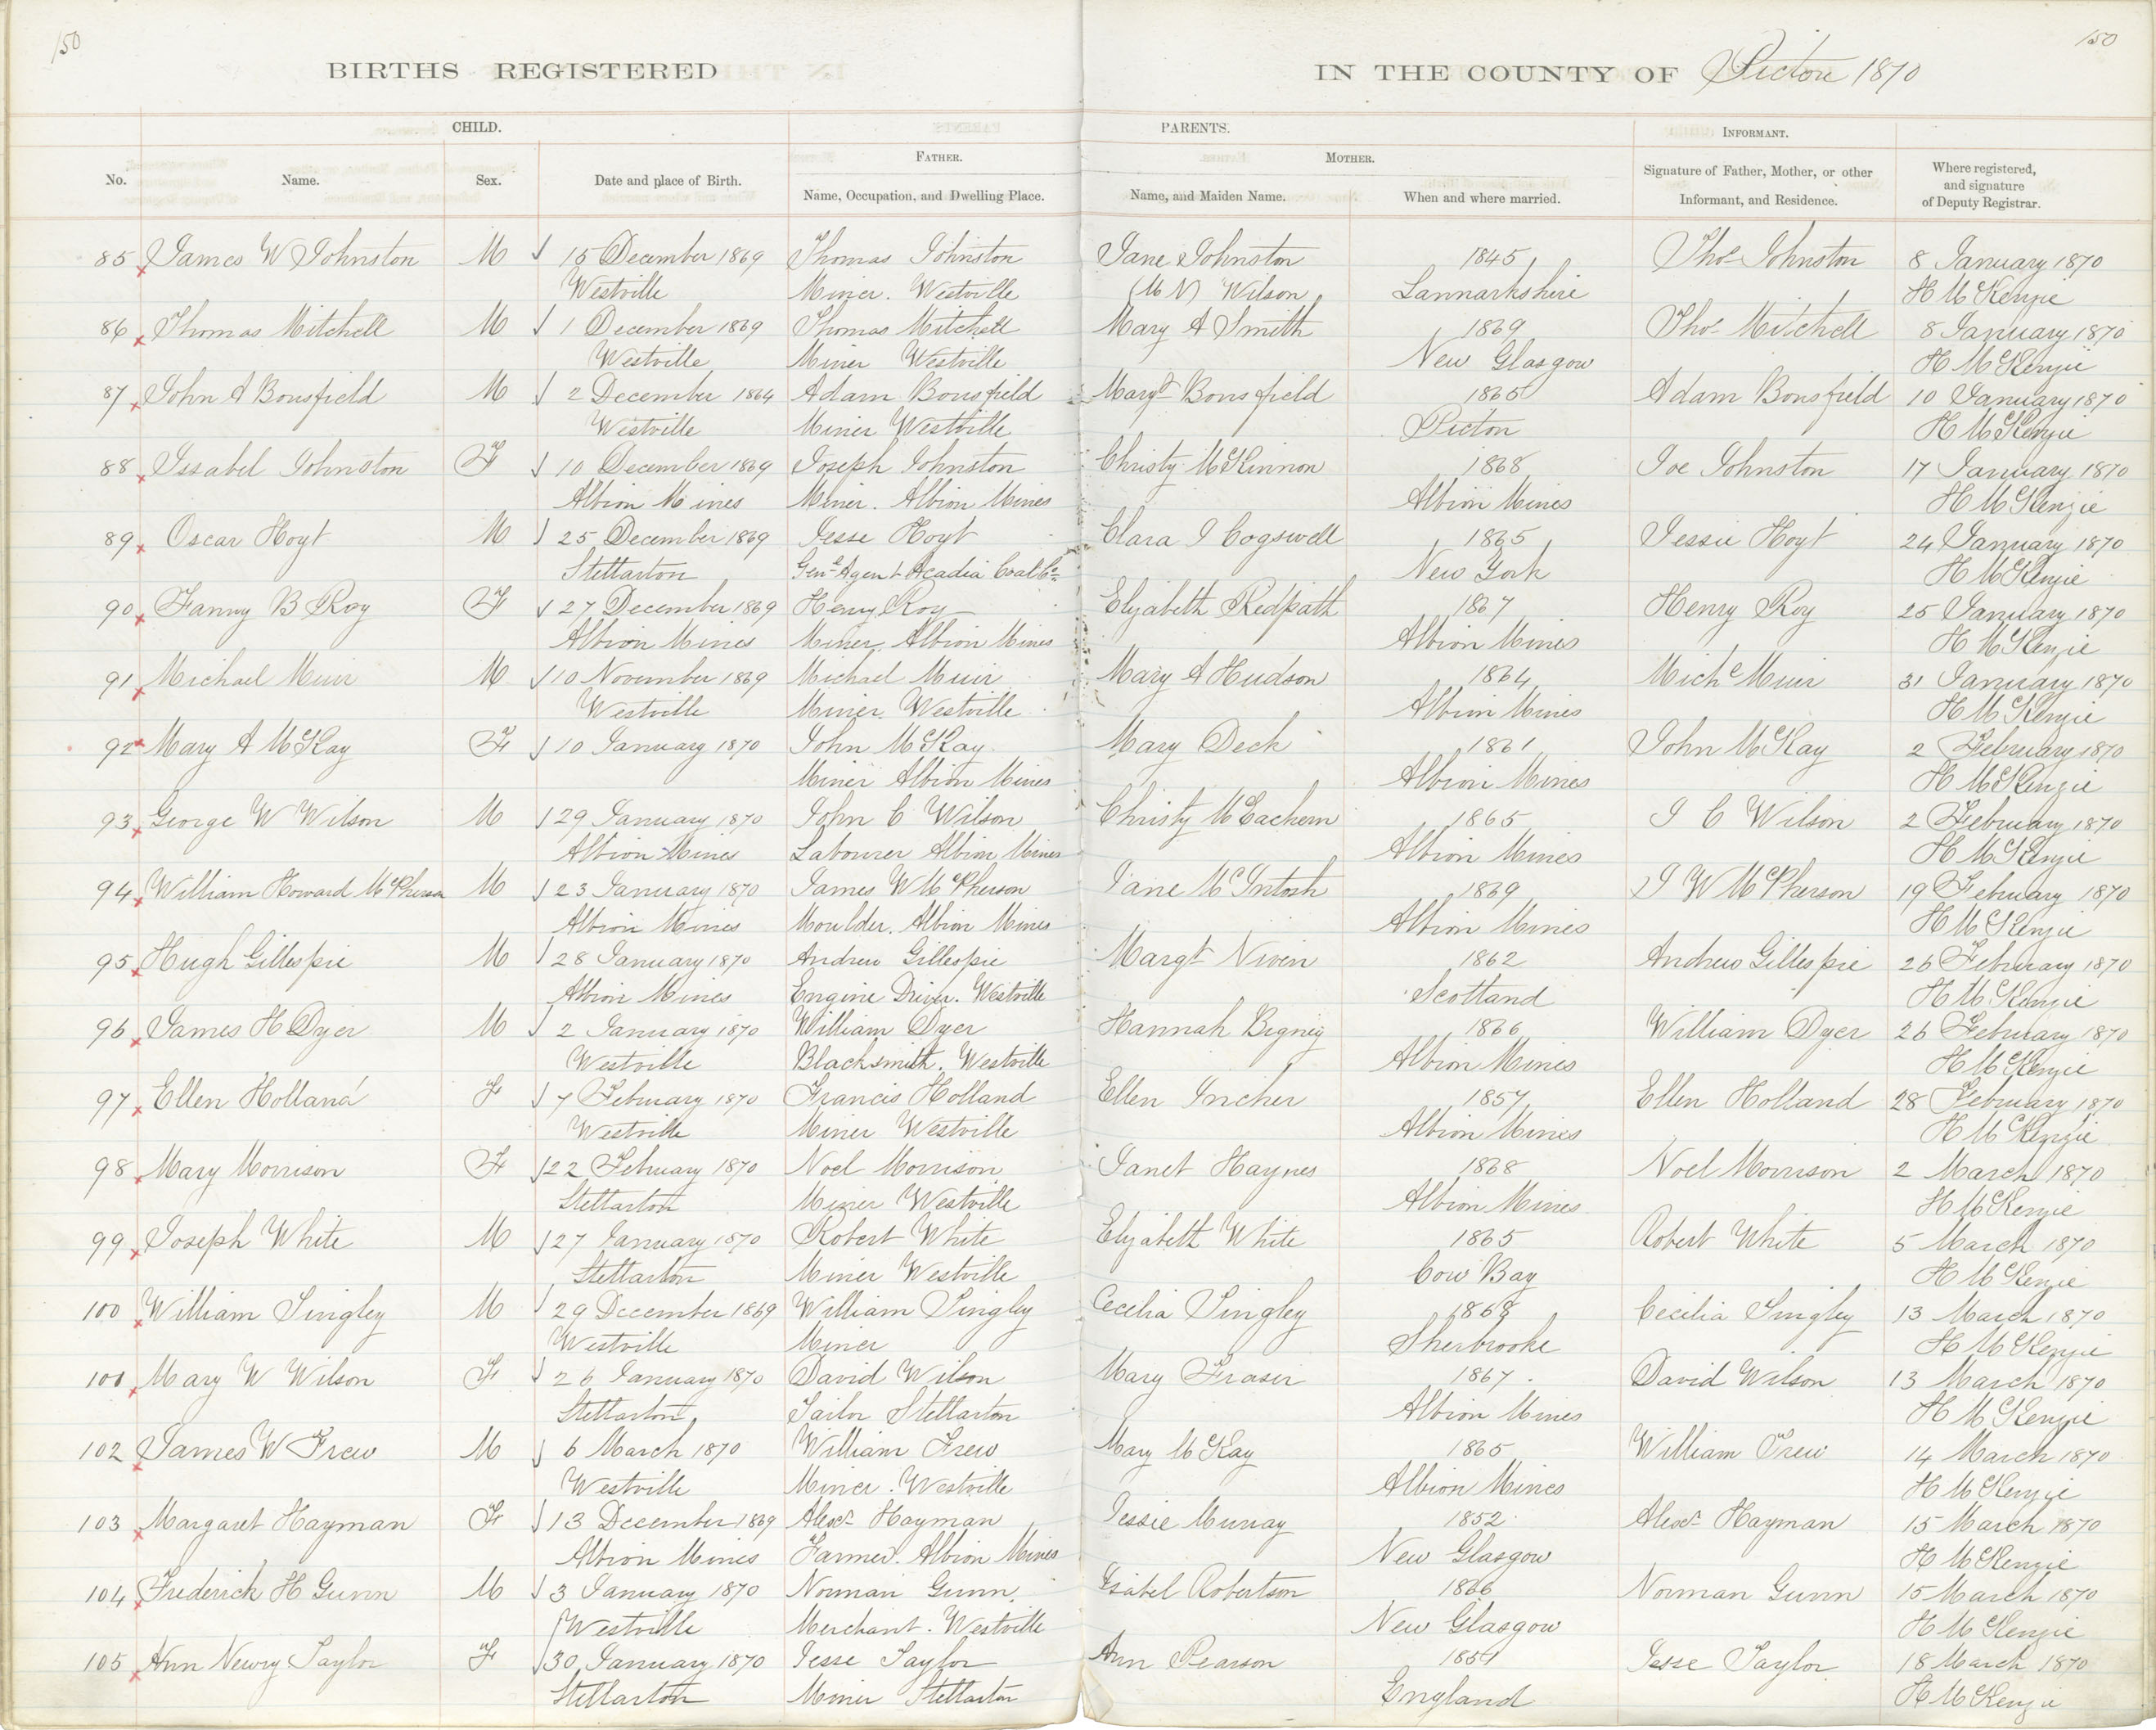 150
150
BIRTHS REGISTERED
IN THE COUNTY OF Pictou 1870
CHILD.
PARENTS.
INFORMANT.
FATHER.
MOTHER.
No.
Name.
Sex.
Date and place of Birth.
Name, Occupation, and Dwelling Place.
Name, and Maiden Name.
When and where married.
Signature of Father, Mother, or other
Informant, and Residence.
Where registered,
and signature
of Deputy Registrar.
85 James W Johnston M 15 December 1869 Thomas Johnston Jane Johnston 1845 Thos Johnston 8 January 1870
Westville Miner. Westville (M N) Wilson Lannarkshire H McKenzie
86 Thomas Mitchell M 1 December 1869 Thomas Mitchell Mary A Smith 1869 Thos Mitchell 8 January 1870
Westville Miner Westville New Glasgow H McKenzie
87 John A Bonsfield M 2 December 1864 Adam Bonsfield Margt Bonsfield 1865 Adam Bonsfield 10 January 1870
Westville Miner Westville Pictou H McKenzie
88 Issabel Johnston F 10 December 1869 Joseph Johnston Christy McKinnon 1868 Joe Johnston 17 January 1870
Albion Mines Miner. Albion Mines Albion Mines H McKenzie
89 Oscar Hoyt M 25 December 1869 Jesse Hoyt Clara J Cogswell 1865 Jessie Hoyt 24 January 1870
Stellarton Genl Agent Acadia Coal Co New York H McKenzie
90 Fanny B Roy F 27 December 1869 Henry Roy Elizabeth Redpath 1867 Henry Roy 25 January 1870
Albion Mines Miner Albion Mines Albion Mines H McKenzie
91 Michael Muir M 10 November 1869 Michael Muir Mary A Hudson 1864 Michl Muir 31 January 1870
Westville Miner Westville Albion Mines H McKenzie
92 Mary A McKay F 10 January 1870 John McKay Mary Deck 1861 John McKay 2 February 1870
Miner Albion Mines Albion Mines H McKenzie
93 George W Wilson M 29 January 1870 John C Wilson Christy McEachern 1865 J C Wilson 2 February 1870
Albion Mines Labourer Albion Mines Albion Mines H McKenzie
94 William Howard McPherson M 23 January 1870 James W McPherson Jane McIntosh 1869 J W McPherson 19 February 1870
Albion Mines Moulder. Albion Mines Albion Mines H McKenzie
95 Hugh Gillespie M 28 January 1870 Andrew Gillespie Margt Nivin 1862 Andrew Gillespie 26 February 1870
Albion Mines Engine Driver. Westville Scotland H McKenzie
96 James H Dyer M 2 January 1870 William Dyer Hannah Bigney 1866 William Dyer 26 February 1870
Westville Blacksmith. Westville Albion Mines H McKenzie
97 Ellen Holland F 7 February 1870 Francis Holland Ellen Incher 1857 Ellen Holland 28 February 1870
Westville Miner Westville Albion Mines H McKenzie
98 Mary Morrison F 22 February 1870 Noel Morrison Janet Haynes 1868 Noel Morrison 2 March 1870
Stellarton Miner Westville Albion Mines H McKenzie
99 Joseph White M 27 January 1870 Robert White Elizabeth White 1865 Robert White 5 March 1870
Stellarton Miner Westville Cow Bay H McKenzie
100 William Tingley M 29 December 1869 William Tingley Cecelia Tingley 1868 Cecilia Tingley 13 March 1870
Westville Miner Sherbrooke H McKenzie
101 Mary W Wilson F 26 January 1870 David Wilson Mary Fraser 1867 David Wilson 13 March 1870
Stellarton Tailor Stellarton Albion Mines H McKenzie
102 James W Frew M 6 March 1870 William Frew Mary McKay 1865 William Frew 14 March 1870
Westville Miner. Westville Albion Mines H McKenzie
103 Margaret Hayman F 13 December 1869 Alexr Hayman Jessie Murray 1852 Alexr Hayman 15 March 1870
Albion Mines Farmer. Albion Mines New Glasgow H McKenzie
104 Frederick H Gunn M 3 January 1870 Norman Gunn Isabel Robertson 1866 Norman Gunn 15 March 1870
Westville Merchant. Westville New Glasgow H McKenzie
105 Ann Newry Taylor F 30 January 1870 Jesse Taylor Ann Pearson Jesse Taylor 18 March 1870
Stellarton Miner Stellarton England H McKenzie